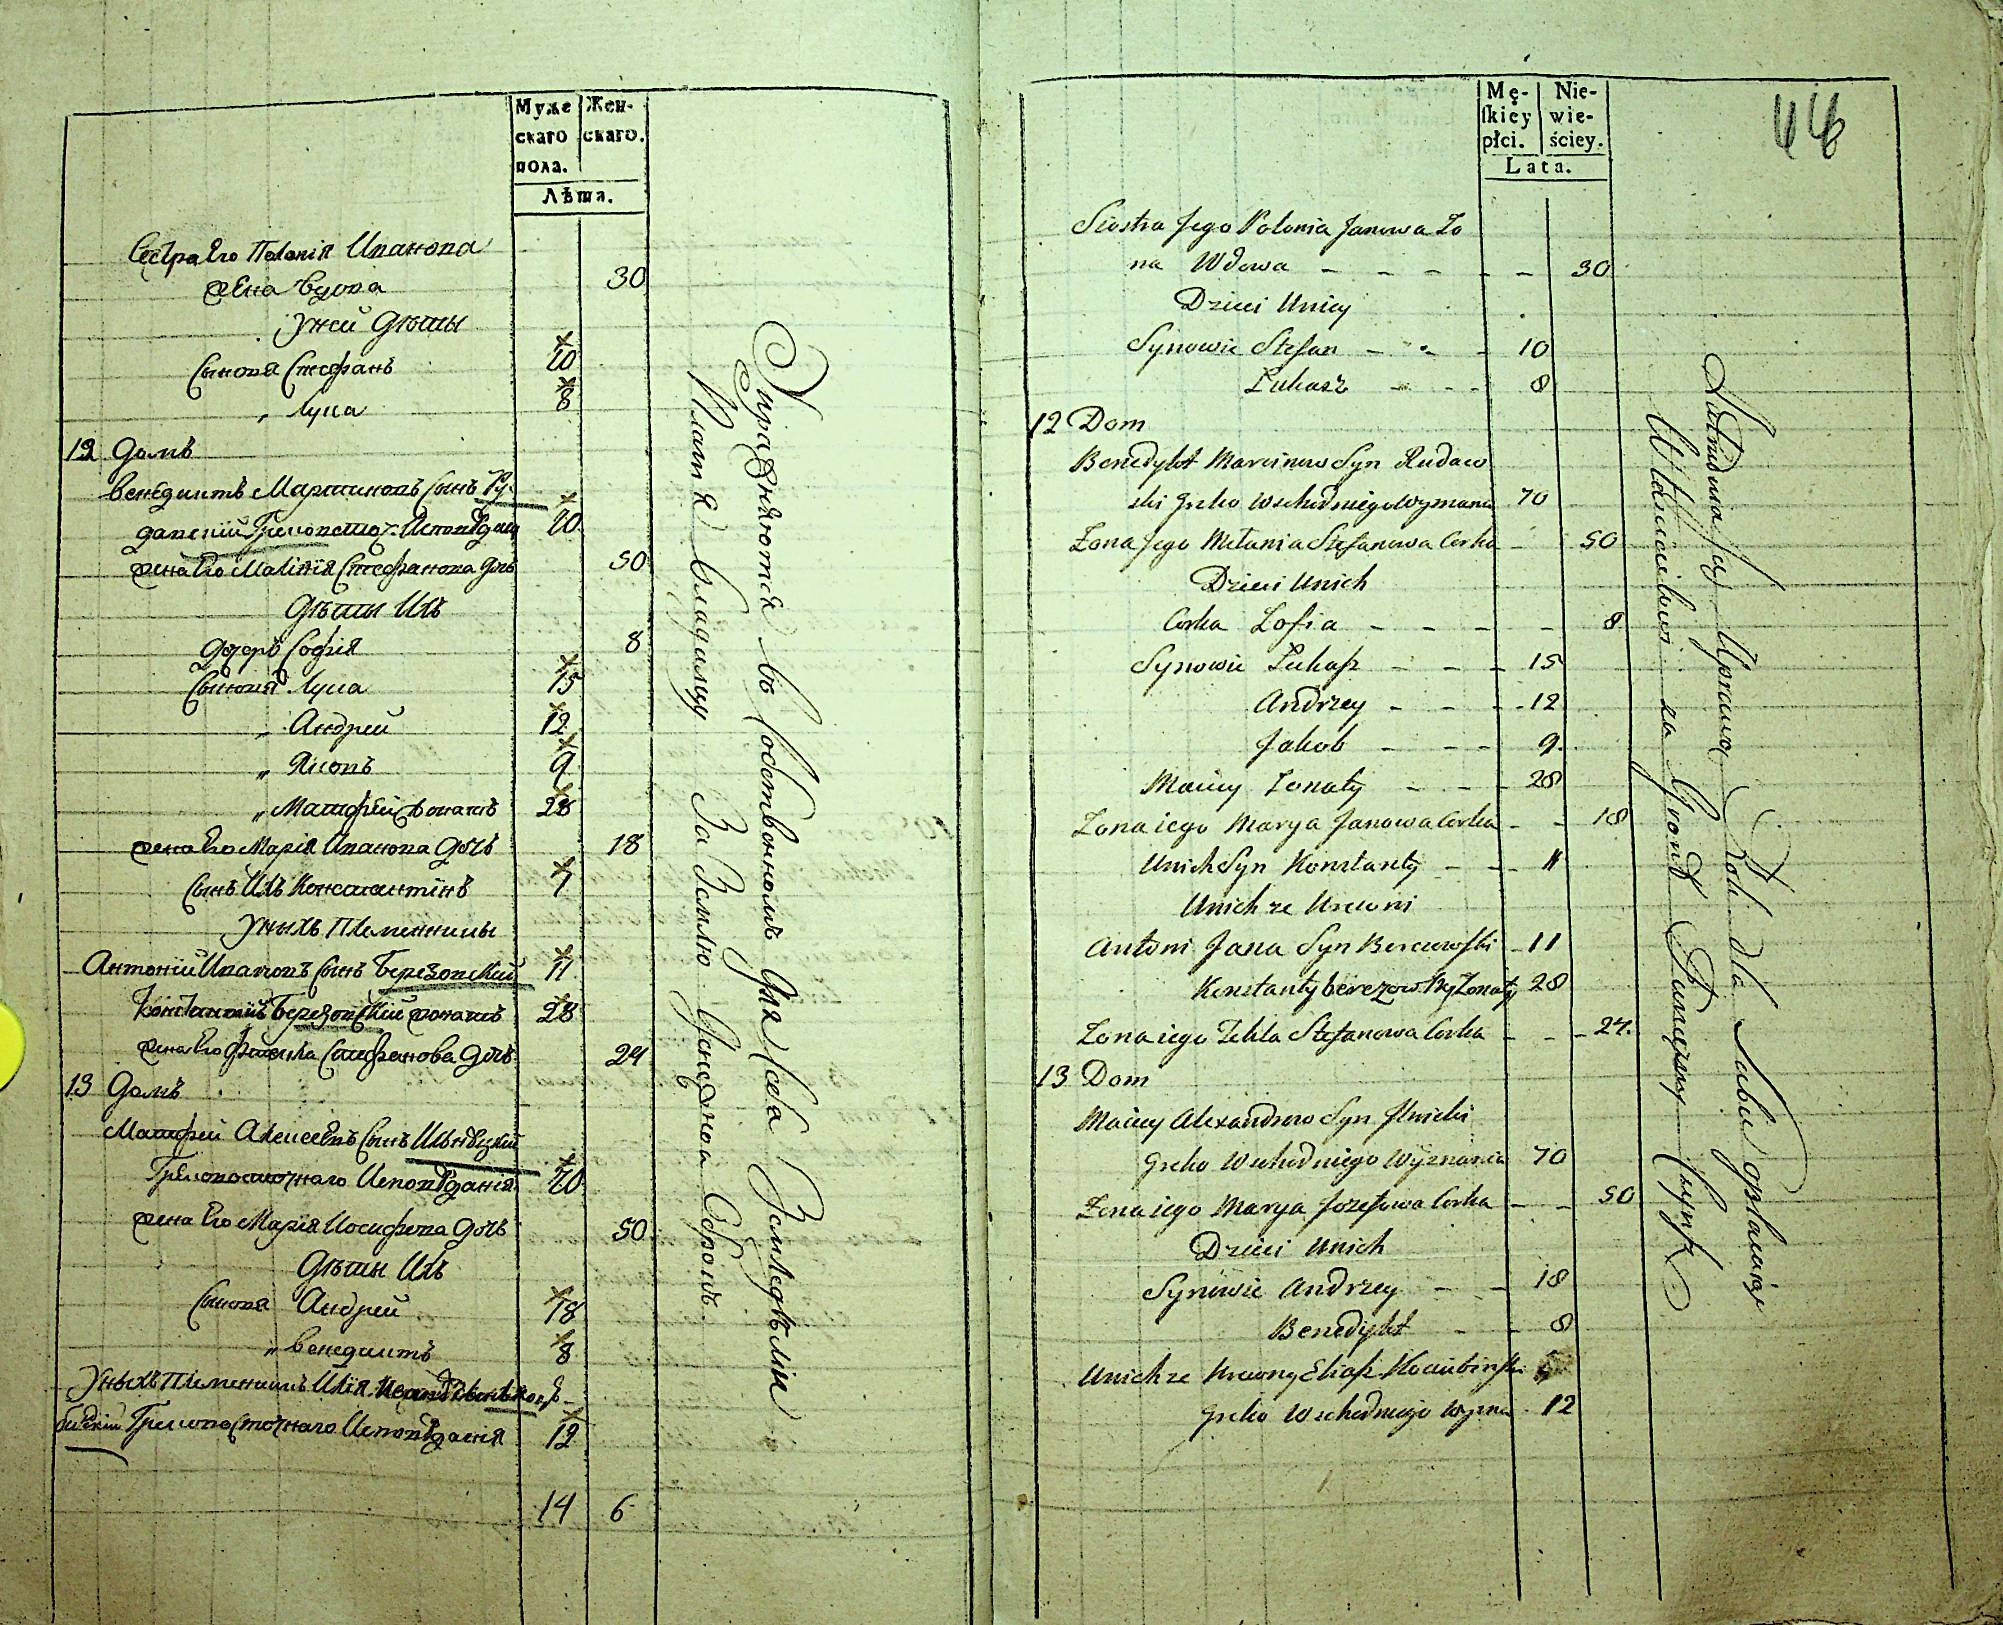 Муже
скаго
пола.
Жен-
скаго.
Лѣта.
Сестра Его Полонія Иванова
жена вдова 30
у ней дѣти
Сыновя Стефанъ 10
„ Лука 8
12 домъ
Венедиктъ Мартиновъ Сынъ Ру-
давскій Грековосточ: Исповѣдан 70
жена Его Маланія Стефанова дочь 50
Дѣти Ихъ
дочерь Софія 8
Сыновя Лука 15
„ Андрей 12
„ Яковъ 9
„ Матфей жонатъ 28
жена Его Марія Иванова дочь 18
Сынъ Ихъ Константинъ 1
У ныхъ Племенники
Антоній Ивановъ Сынъ Березовский 11
Константий Березовский жонатъ 28
жена Его Фекла Стефанова дочь 24
13 домъ
Матфей Алексеевъ Сынъ
Грековосточнаго Исповѣданія 70
жена Его Марія Иосифова дочь 50
Дѣти Ихъ
Сыновя Андрей 18
„ Венедиктъ 8
У ныхъ Племенникъ Илія
Грековосточнаго Исповѣданія 12
14 6
Упражняются въ собственномъ для себя земледѣліи
Платя Владѣлцу За Землю Денежной Оброкъ.
Mę-
ſkiey
płci.
Nie-
wie-
ściey.
Lata.
44
Siostra Jego Polonia Janowa Żo
na Wdowa – – – – – 30
Dzieci Unicy
Synowie Stefan – – – 10
Łukasz – – – 8
12 Dom
Benedykt Marcinow Syn Rudaw
ski Greko Wschodniego Wyznania 70
Żona Jego Mełania Stefanowa Corka – 50
Dzieci Unich
Corka Zofia – – – – – 8
Synowie Łukasz – – – 15
Andrzey – – – 12
Jakob – – – 9
Maciey Żonaty – – – 28
Żona iego Marya Janowa Corka – – 18
Unich Syn Konstanty – – – 1
Unich ze Krewni
Antoni Jana Syn Berezowſki – 11
Konstanty berezowſky Żonaty 28
Żona iego Tekla Stefanowa Corka – – – 24.
13 Dom
Maciey Alexandrow Syn
Greko Wschodniego Wyznania 70
Żona iego Marya Jozefowa Corka – – 50
Dzieci Unich
Synowie Andrzey – – 18
Benedykt – – 8
Unich ze Krewny Eliasz Kociubinſki
Greko Wschodniego Wyzna 12
Zatrudnia Się Uprawą Roli dla Siebie opłacaiąc
Właścicielowi za Grunt Pieniężny Czynsz